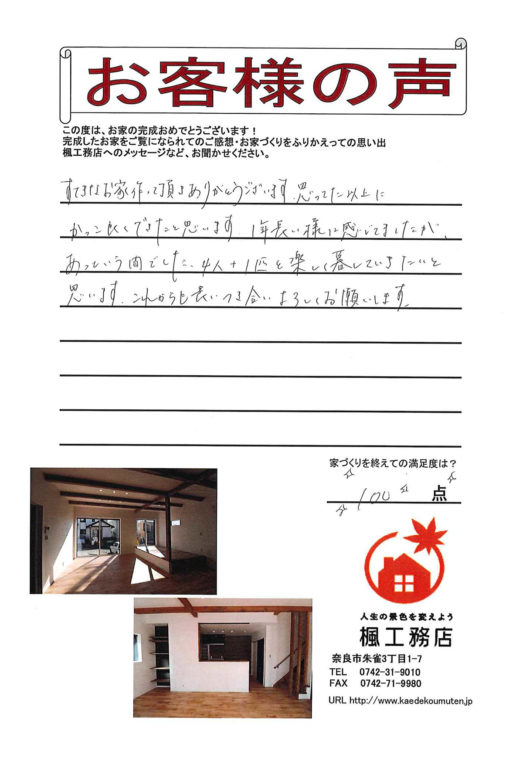 お客様の声
この度は、お家の完成おめでとうございます！
完成したお家をご覧になられてのご感想・お家づくりをふりかえっての思い出
楓工務店へのメッセージなど、お聞かせください。
すてきなお家作って頂きありがとうございます。思ってた以上に
かっこ良くできたと思います。1年長い様に感じてましたが、
あっという間でした。4人＋1匹で楽しく暮していきたいと
思います。これからも長いつき合いよろしくお願いします。
家づくりを終えての満足度は？
100 点
人生の景色を変えよう
楓工務店
奈良市朱雀3丁目1-7
TEL 0742-31-9010
FAX 0742-71-9980
URL http://www.kaedekoumuten.jp